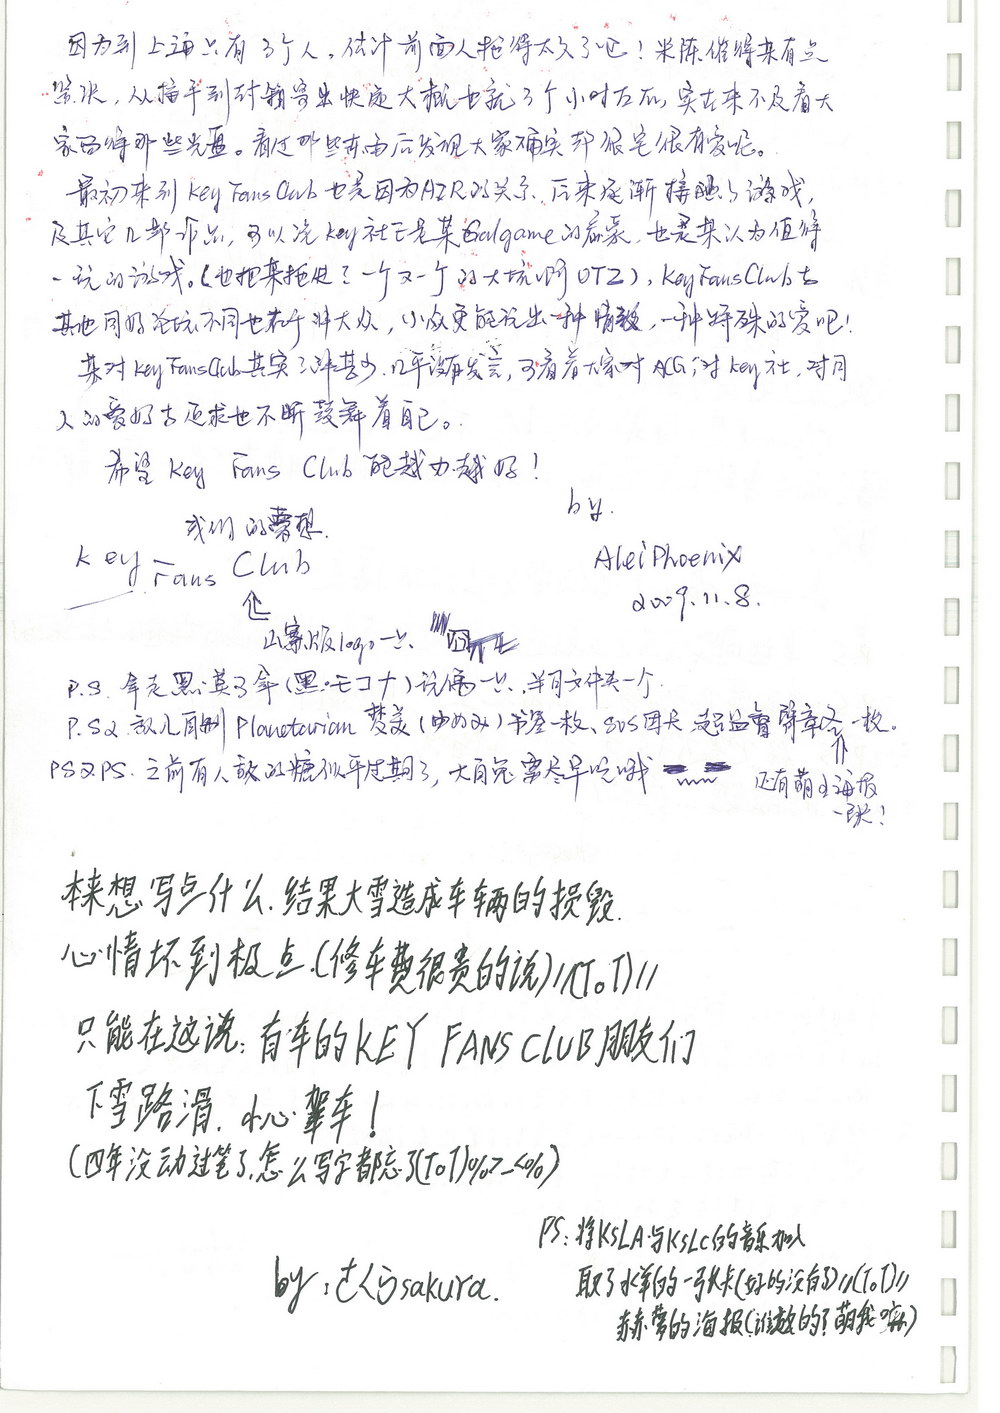 因为到上海只有3个人，估计前面人拖得太久了吧！米陈催得某有点
紧张，从接手到封箱寄出快递大概也就3个小时左右，实在来不及看大
家西得那些光盘。看过那些东西后发现大家确实都很宅很有爱呢。
最初来到Key Fans Club也是因为AIR的关系、后来逐渐接触了游戏，
及其它几部作品，可以说key社正是某Galgame的启蒙，也是某认为值得
一玩的游戏。(也把某拖进了一个又一个的大坑啊OTZ)，KeyFansClub与
其他同好论坛不同也在于非大众，小众更能说出一种情敬，一种特殊的爱吧！
某对KeyFansClub其实了解甚少，几乎没有发言，可看着大家对ACG，对key社，对同
人的爱好与追求也不断鼓舞着自己。
希望 Key Fans Club 能越办越好！
by.
我们的梦想.
Key Fans Club
AleiPhoenix
2009.11.8.
山寨版logo一只、
P.S. 拿走黑莫了拿(黑·モコナ)说偶一只、半月文件夹一个.
P.S2. 放入自制Planetarian 梦美(ゆめみ)书签一枚、SOS团长 超监督臂章一枚。
PS2.PS. 之前有人放的糖似乎过期了，大自觉需尽早吃哦
还有萌え海报
一张！
本来想写点什么.结果大雪造成车辆的损毁.
心情坏到极点.(修车费很贵的说)//(ToT)//
只能在这说：有车的KEY FANS CLUB朋友们
下雪路滑.小心驾车！
(四年没动过笔了.怎么写字都忘了(ToT)%>_<%)
PS：将KSLA与KSLC的音乐加入
取了水羊的一张卡(好的没有了)//(ToT)//
by：さくらsakura.
赤梦的海报(谁放的？萌我嘛)